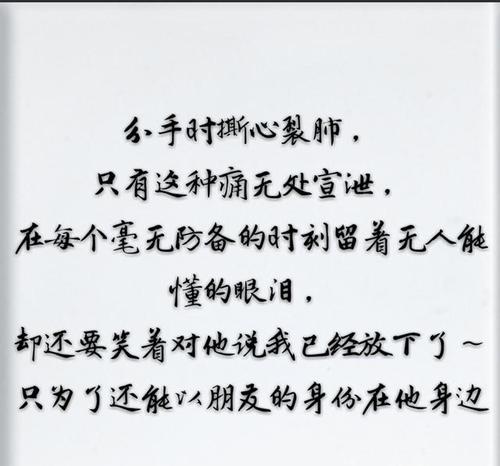 分手时撕心裂肺，
只有这种痛无处宣泄，
在每个毫无防备的时刻留着无人能
懂的眼泪，
却还要笑着对他说我已经放下了～
只为了还能以朋友的身份在他身边